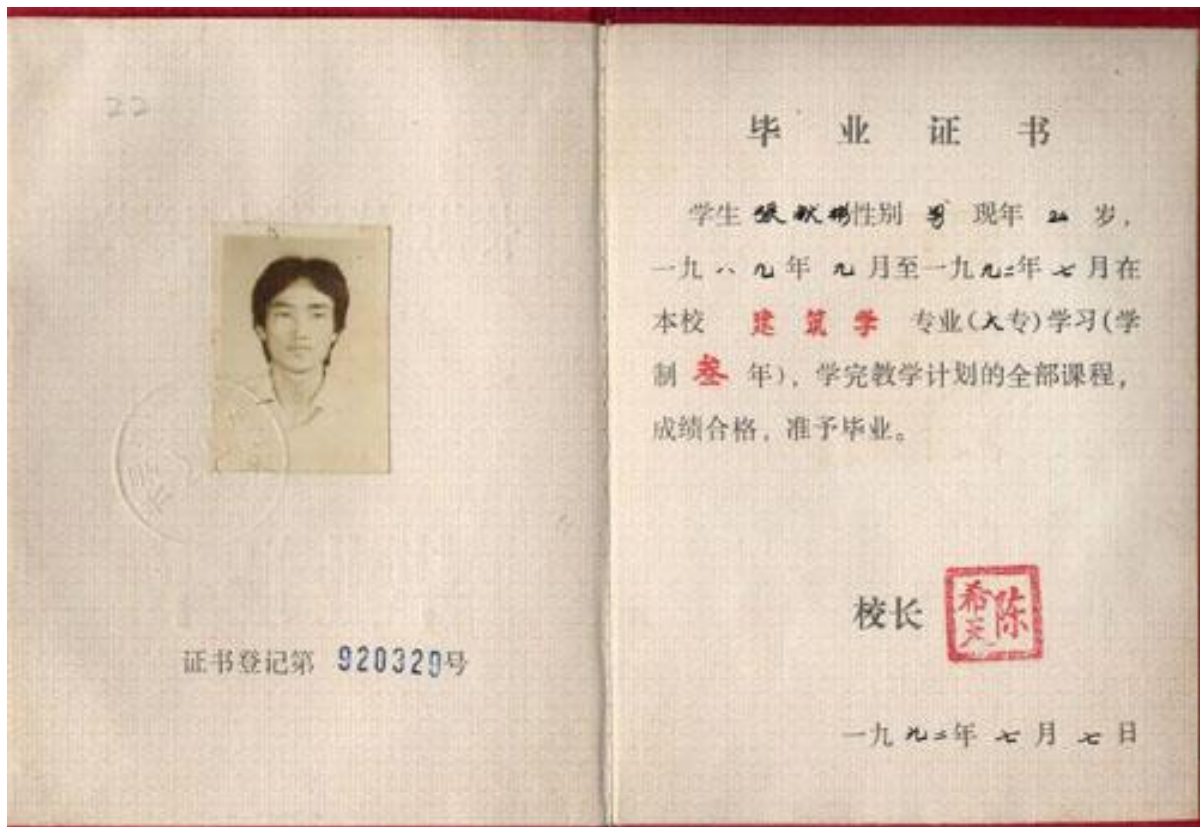 22
证书登记第 920329号
毕业证书
学生 张献彬性别 男 现年 20 岁，
一九八九年九月至一九九二年七月在
本校 建筑学 专业(大专)学习(学
制 叁 年)，学完教学计划的全部课程，
成绩合格，准予毕业。
校长 陈希天
一九九二年七月七日